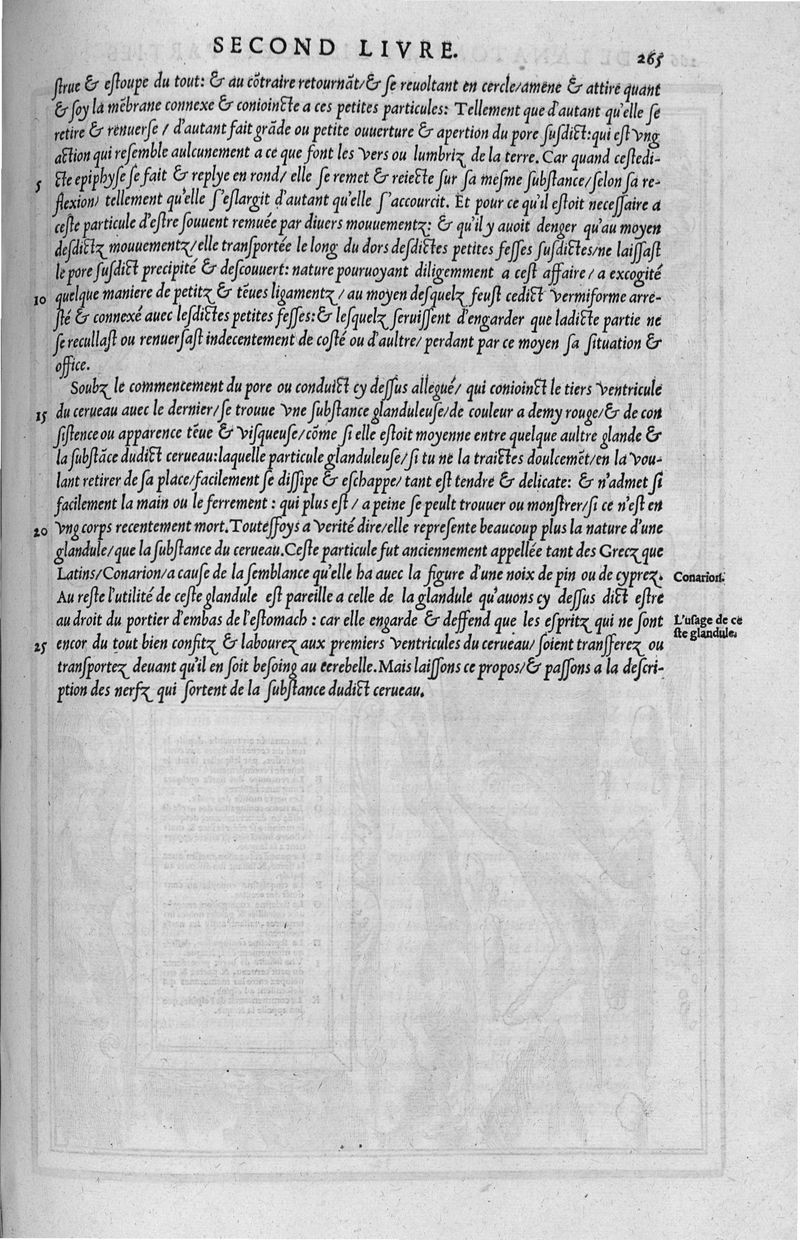 SECOND LIVRE.
265
ſtrue & eſtoupe du tout: & au cõtraire retournãt/& ſe reuoltant en cercle/amene & attire quant
& ſoy la mẽbrane connexe & conioincte a ces petites particules: Tellement que d'autant qu'elle ſe
retire & renuerſe / d'autant fait grãde ou petite ouuerture & apertion du pore ſuſdict:qui eſt vng
action qui reſemble aulcunement a ce que font les vers ou lumbriz de la terre. Car quand ceſtedi-
5 cte epiphyſe ſe fait & replye en rond/ elle ſe remet & reiecte ſur ſa meſme ſubſtance/ſelon ſa re-
flexion/ tellement qu'elle ſ'eſlargit d'autant qu'elle ſ'accourcit. Et pour ce qu'il eſtoit neceſſaire a
ceſte particule d'eſtre ſouuent remuée par diuers mouuementz: & qu'il y auoit denger qu'au moyen
deſdictz mouuementz/elle tranſportée le long du dors deſdictes petites feſſes ſuſdictes/ne laiſſaſt
le pore ſuſdict precipité & deſcouuert: nature pouruoyant diligemment a ceſt affaire/ a excogité
10 quelque maniere de petitz & tẽues ligamentz/ au moyen deſquelz feuſt cedict vermiforme arre-
ſté & connexé auec leſdictes petites feſſes:& leſquelz ſeruiſſent d'engarder que ladicte partie ne
ſe recullaſt ou renuerſaſt indecentement de coſté ou d'aultre/ perdant par ce moyen ſa ſituation &
office.
Soubz le commencement du pore ou conduict cy deſſus allegué/ qui conioinct le tiers ventricule
15 du cerueau auec le dernier/ſe trouue vne ſubſtance glanduleuſe/de couleur a demy rouge/& de con
ſiſtence ou apparence tẽue & viſqueuſe/cõme ſi elle eſtoit moyenne entre quelque aultre glande &
la ſubſtãce dudict cerueau:laquelle particule glanduleuſe/ſi tu ne la traictes doulcemẽt/en la vou-
lant retirer de ſa place/facilement ſe diſſipe & eſchappe/ tant eſt tendre & delicate: & n'admet ſi
facilement la main ou le ferrement : qui plus eſt / a peine ſe peult trouuer ou monſtrer/ſi ce n'eſt en
20 vng corps recentement mort. Touteſfoys a verité dire/elle repreſente beaucoup plus la nature d'une
glandule/que la ſubſtance du cerueau. Ceſte particule fut anciennement appellée tant des Grecz que
Latins/Conarion/a cauſe de la ſemblance qu'elle ha auec la figure d'une noix de pin ou de cyprez.
Conarion.
Au reſte l'utilité de ceſte glandule eſt pareille a celle de la glandule qu'auons cy deſſus dict eſtre
au droit du portier d'embas de l'eſtomach : car elle engarde & deffend que les eſpritz qui ne ſont
L'uſage de ce
ſte glandule.
25 encor du tout bien confitz & labourez aux premiers ventricules du cerueau/ ſoient tranſferez ou
tranſportez deuant qu'il en ſoit beſoing au cerebelle. Mais laiſſons ce propos/& paſſons a la deſcri-
ption des nerfz qui ſortent de la ſubſtance dudict cerueau.